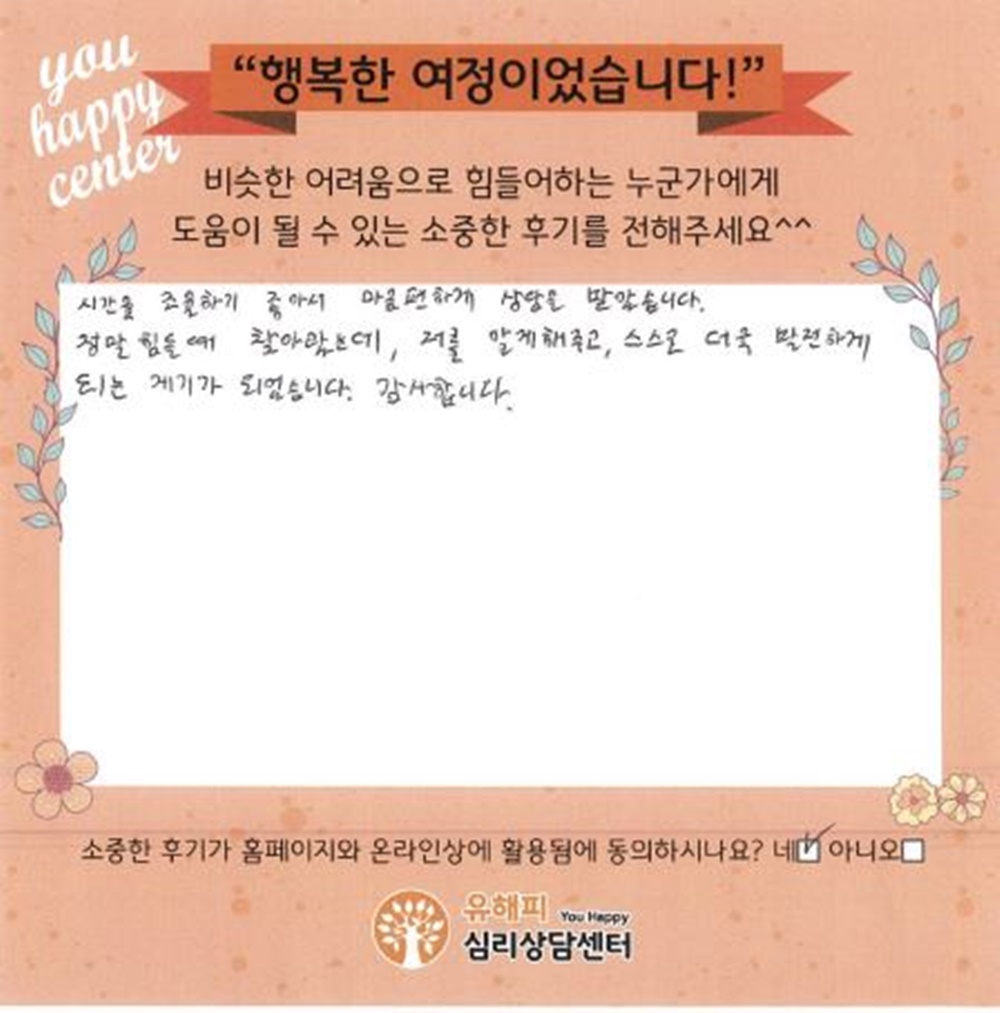 you
happy
center
“행복한 여정이었습니다!”
비슷한 어려움으로 힘들어하는 누군가에게
도움이 될 수 있는 소중한 후기를 전해주세요^^
시간을 조율하기 좋아서 마음편하게 상담을 받았습니다.
정말 힘들때 찾아왔는데, 저를 알게해주고, 스스로 더욱 발전하게
되는 계기가 되었습니다. 감사합니다.
소중한 후기가 홈페이지와 온라인상에 활용됨에 동의하시나요? 네 아니오
유해피 You Happy
심리상담센터